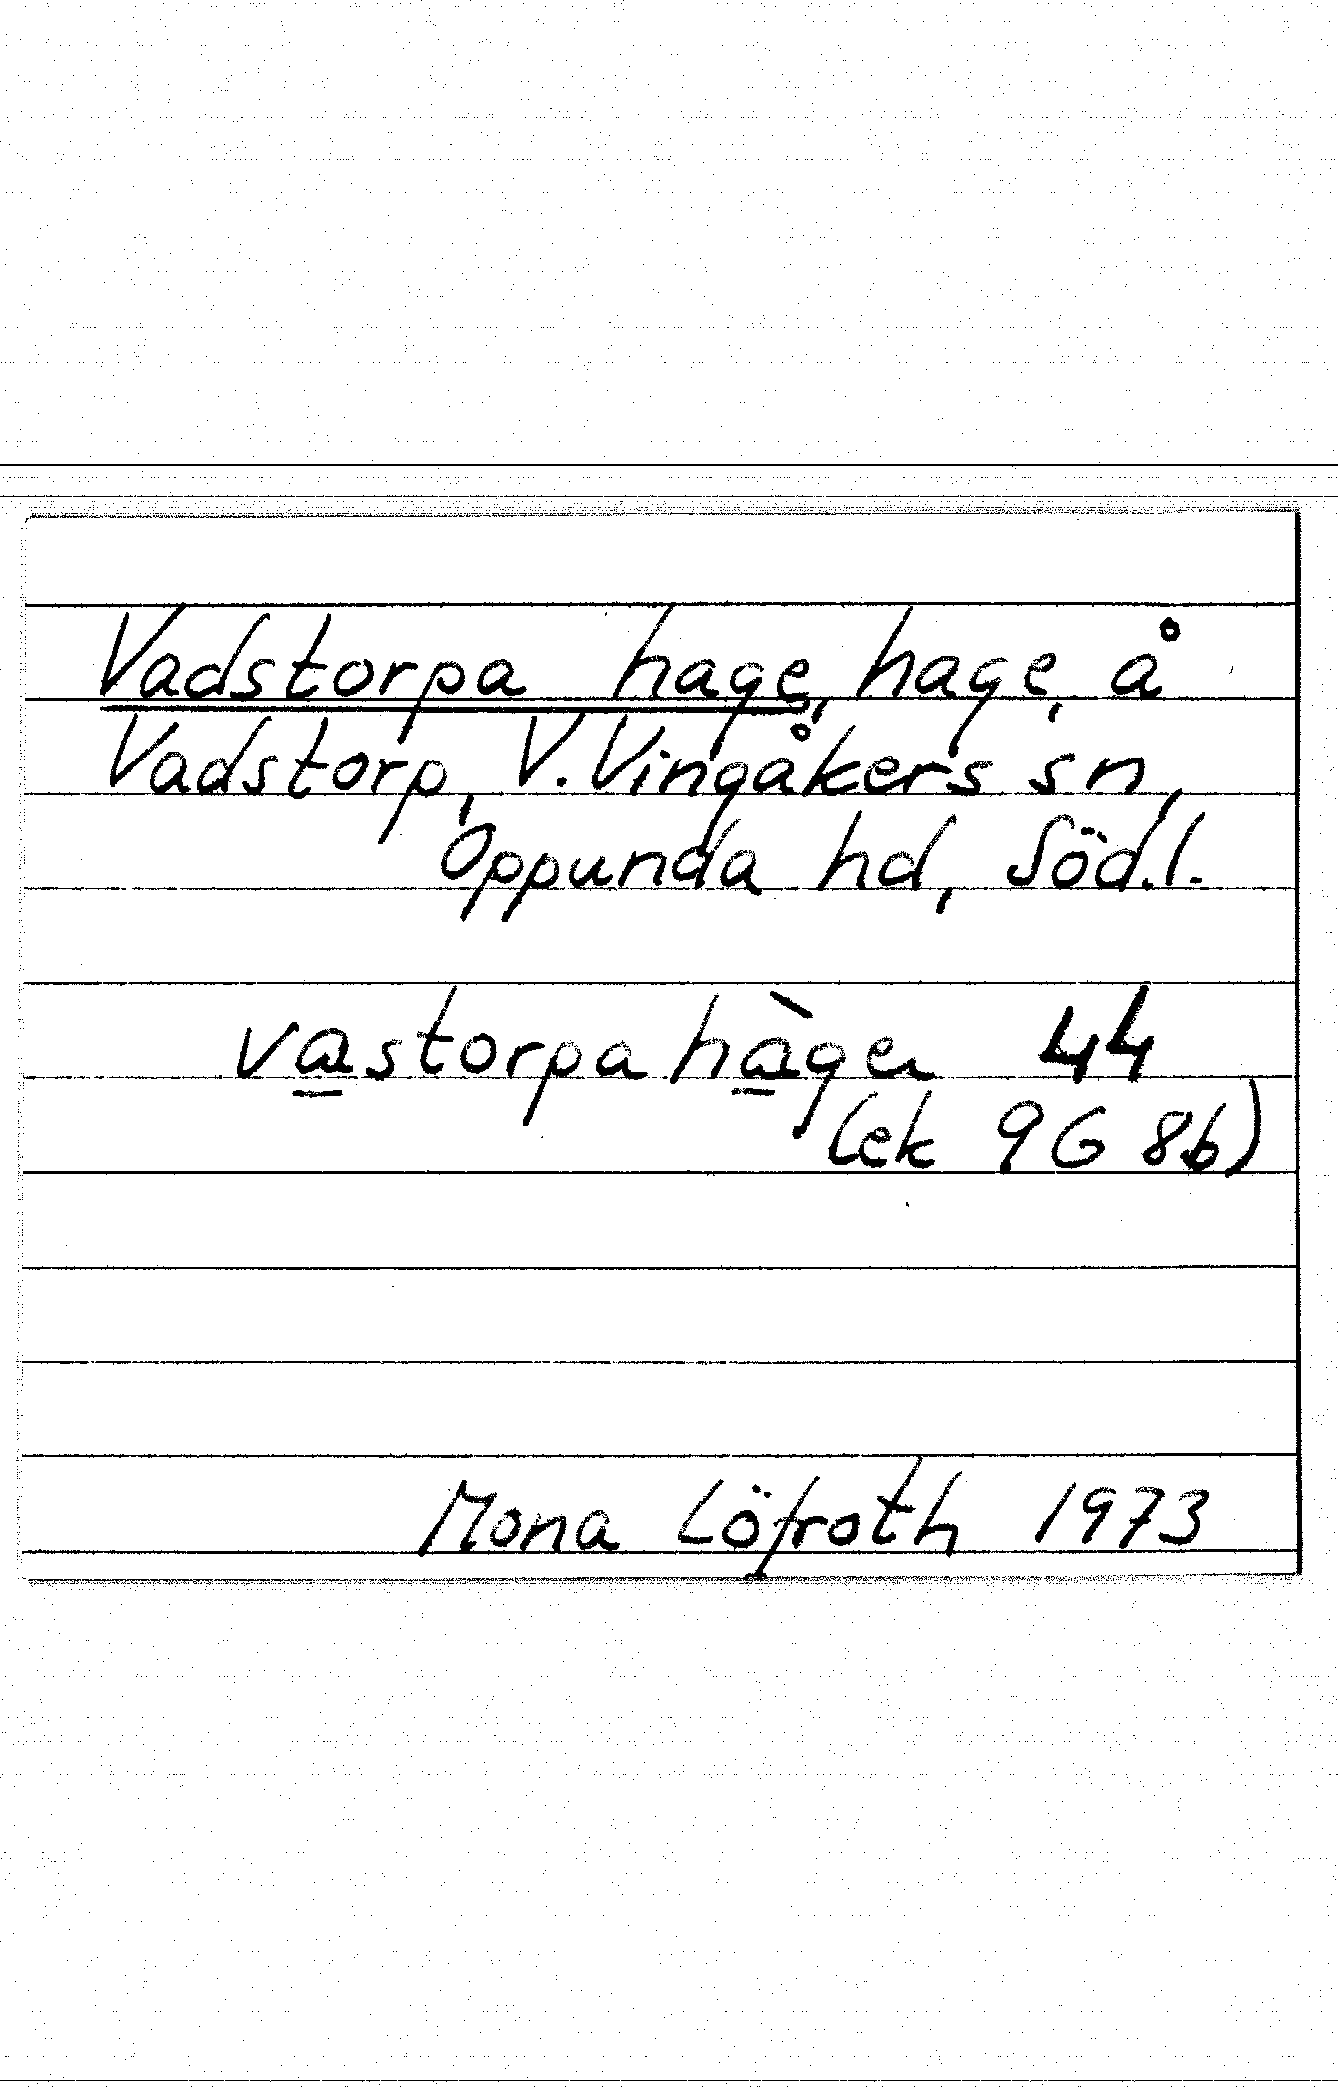 Vadstorpa hage, hage, å
Vadstorp, V. Vingåkers sn,
Oppunda hd, Söd.l.
vastorpahàgen 44
(ek 9G 8b)
Mona Löfroth 1973